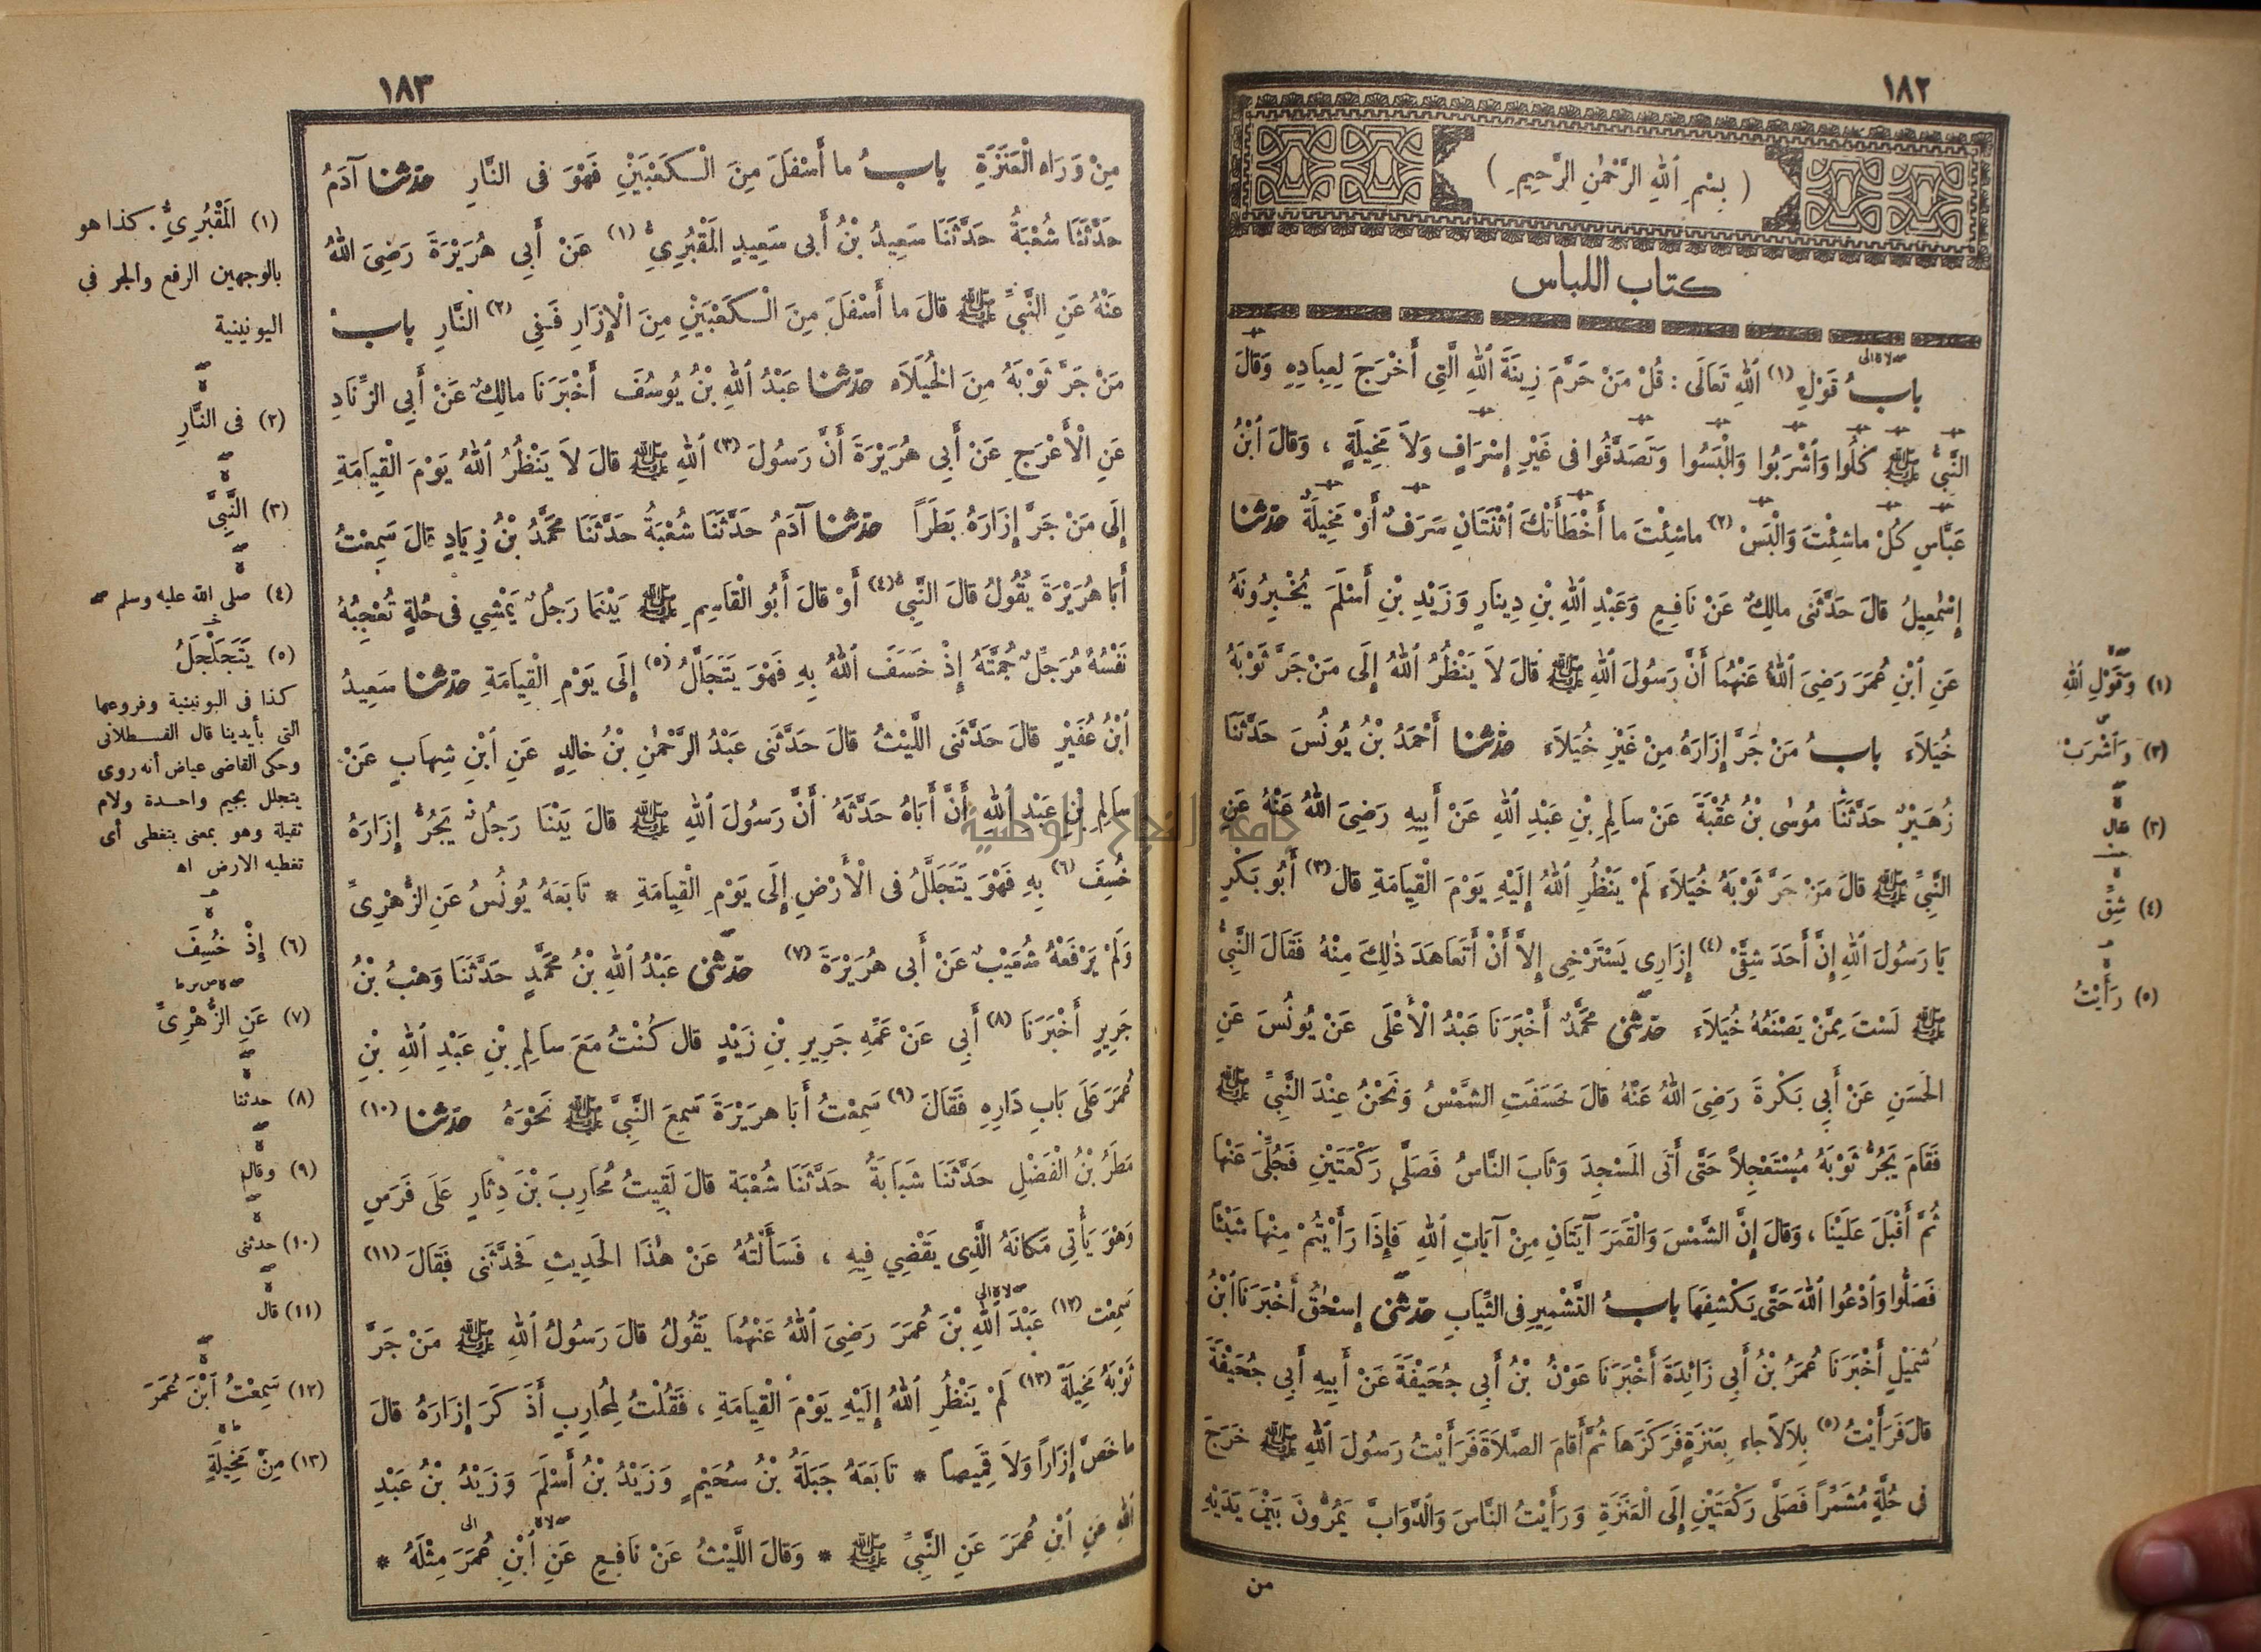 ١٨٢
( بِسْمِ ٱللهِ الرَّحْمٰنِ الرَّحِيمِ )
كتاب اللباس
بابُ قَوْلِ (١) ٱللهِ تَعَالَى : قُلْ مَنْ حَرَّمَ زِينَةَ ٱللهِ الَّتِي أَخْرَجَ لِعِبَادِهِ وَقَالَ
النَّبِيُّ ﷺ كُلُوا وَٱشْرَبُوا وَالْبَسُوا وَتَصَدَّقُوا فِى غَيْرِ إِسْرَافٍ وَلاَ مَخِيلَةٍ ، وَقَالَ ٱبْنُ
عَبَّاسٍ كُلْ ماشِئْتَ وَالْبَسْ (٢) ماشِئْتَ ما أَخْطَأَتْكَ ٱثْنَتَانِ سَرَفٌ أَوْ مَخِيلَةٌ حدثنا
إِسْمٰعِيلُ قالَ حَدَّثَنى مالِكٌ عَنْ نَافِعٍ وَعَبْدِ ٱللهِ بْنِ دِينَارٍ وَزَيْدِ بْنِ أَسْلَمَ يُخْبِرُونَهُ
عَنِ ٱبْنِ عُمَرَ رَضِىَ ٱللهُ عَنْهُمَا أَنَّ رَسُولَ ٱللهِ ﷺ قالَ لاَ يَنْظُرُ ٱللهُ إِلَى مَنْ جَرَّ ثَوْبَهُ
خُيَلاَءَ بابُ مَنْ جَرَّ إِزَارَهُ مِنْ غَيْرِ خُيَلاَءَ حدثنا أَحْمَدُ بْنُ يُونُسَ حَدَّثَنَا
زُهَيْرٌ حَدَّثَنَا مُوسٰى بْنُ عُقْبَةَ عَنْ سَالِمِ بْنِ عَبْدِ ٱللهِ عَنْ أَبِيهِ رَضِىَ ٱللهُ عَنْهُ عَنِ
النَّبِيِّ ﷺ قالَ مَنْ جَرَّ ثَوْبَهُ خُيَلاَءَ لَمْ يَنْظُرِ ٱللهُ إِلَيْهِ يَوْمَ الْقِيَامَةِ قالَ (٣) أَبُو بَكْرٍ
يَا رَسُولَ ٱللهِ إِنَّ أَحَدَ شِقَّىْ (٤) إِزَارِى يَسْتَرْخِى إِلاَّ أَنْ أَتَعَاهَدَ ذٰلِكَ مِنْهُ فَقَالَ النَّبِيُّ
ﷺ لَسْتَ مِمَّنْ يَصْنَعُهُ خُيَلاَءَ حدثنى مُحَمَّدٌ أَخْبَرَنَا عَبْدُ الْأَعْلَى عَنْ يُونُسَ عَنِ
الحَسَنِ عَنْ أَبِي بَكْرَةَ رَضِىَ ٱللهُ عَنْهُ قالَ خَسَفَتِ الشَّمْسُ وَنَحْنُ عِنْدَ النَّبِيِّ ﷺ
فَقَامَ يَجُرُّ ثَوْبَهُ مُسْتَعْجِلاً حَتَّى أَتَى المَسْجِدَ وَثَابَ النَّاسُ فَصَلَّى رَكْعَتَيْنِ فَجُلِّىَ عَنْهَا
ثُمَّ أَقْبَلَ عَلَيْنَا ، وَقالَ إِنَّ الشَّمْسَ وَالْقَمَرَ آيَتَانِ مِنْ آيَاتِ ٱللهِ فَإِذَا رَأَيْتُمْ مِنْهَا شَيْئًا
فَصَلُّوا وَٱدْعُوا ٱللهَ حَتَّى يَكْشِفَهَا بابُ التَّشْمِيرِ فِى الثِّيَابِ حدثنى إِسْحٰقُ أَخْبَرَنَا ٱبْنُ
شُمَيْلٍ أَخْبَرَنَا عُمَرُ بْنُ أَبِي زَائِدَةَ أَخْبَرَنَا عَوْنُ بْنُ أَبِي جُحَيْفَةَ عَنْ أَبِيهِ أَبِي جُحَيْفَةَ
قالَ فَرَأَيْتُ (٥) بِلاَلاً جاء بِعَنَزَةٍ فَرَكَزَهَا ثُمَّ أَقامَ الصَّلاَةَ فَرَأَيْتُ رَسُولَ ٱللهِ ﷺ خَرَجَ
فى حُلَّةٍ مُشَمِّرًا فَصَلَّى رَكْعَتَيْنِ إِلَى الْعَنَزَةِ وَرَأَيْتُ النَّاسَ وَالدَّوَابَّ يَمُرُّونَ بَيْنَ يَدَيْهِ
من
(١) وَقَوْلِ ٱللهِ
(٢) وَٱشْرَبْ
(٣) فقال
(٤) شِقِّ
(٥) رَأَيْتُ
١٨٣
مِنْ وَرَاءِ الْعَنَزَةِ بابُ ما أَسْفَلَ مِنَ الْكَعْبَيْنِ فَهْوَ فى النَّارِ حدثنا آدَمُ
حَدَّثَنَا شُعْبَةُ حَدَّثَنَا سَعِيدُ بْنُ أَبى سَعِيدٍ المَقْبُرِيِّ (١) عَنْ أَبِى هُرَيْرَةَ رَضِىَ ٱللهُ
عَنْهُ عَنِ النَّبِيِّ ﷺ قالَ ما أَسْفَلَ مِنَ الْكَعْبَيْنِ مِنَ الْإِزَارِ فَفِى (٢) النَّارِ بابُ
مَنْ جَرَّ ثَوْبَهُ مِنَ الخُيَلاَءِ حدثنا عَبْدُ ٱللهِ بْنُ يُوسُفَ أَخْبَرَنَا مالِكٌ عَنْ أَبِي الزِّنَادِ
عَنِ الْأَعْرَجِ عَنْ أَبِى هُرَيْرَةَ أَنَّ رَسُولَ (٣) ٱللهِ ﷺ قالَ لاَ يَنْظُرُ ٱللهُ يَوْمَ الْقِيَامَةِ
إِلَى مَنْ جَرَّ إِزَارَهُ بَطَرًا حدثنا آدَمُ حَدَّثَنَا شُعْبَةُ حَدَّثَنَا مُحَمَّدُ بْنُ زِيَادٍ قالَ سَمِعْتُ
أَبَا هُرَيْرَةَ يَقُولُ قالَ النَّبِيُّ (٤) أَوْ قالَ أَبُو الْقَاسِمِ ﷺ بَيْنَمَا رَجُلٌ يَمْشِي فى حُلَّةٍ تُعْجِبُهُ
نَفْسُهُ مُرَجِّلٌ جُمَّتَهُ إِذْ خَسَفَ ٱللهُ بِهِ فَهْوَ يَتَجَلَّلُ (٥) إِلَى يَوْمِ الْقِيَامَةِ حدثنا سَعِيدُ
ٱبْنُ عُفَيْرٍ قالَ حَدَّثَنى اللَّيْثُ قالَ حَدَّثَنى عَبْدُ الرَّحْمٰنِ بْنُ خالِدٍ عَنِ ٱبْنِ شِهَابٍ عَنْ
سالِمِ بْنِ عَبْدِ ٱللهِ أَنَّ أَبَاهُ حَدَّثَهُ أَنَّ رَسُولَ ٱللهِ ﷺ قالَ بَيْنَا رَجُلٌ يَجُرُّ إِزَارَهُ
خُسِفَ (٦) بِهِ فَهْوَ يَتَجَلَّلُ فى الْأَرْضِ إِلَى يَوْمِ الْقِيَامَةِ * تَابَعَهُ يُونُسُ عَنِ الزُّهْرِىِّ
وَلَمْ يَرْفَعْهُ شُعَيْبٌ عَنْ أَبى هُرَيْرَةَ (٧) حدثنى عَبْدُ ٱللهِ بْنُ مُحَمَّدٍ حَدَّثَنَا وَهْبُ بْنُ
جَرِيرٍ أَخْبَرَنَا (٨) أَبِي عَنْ عَمِّهِ جَرِيرِ بْنِ زَيْدٍ قالَ كُنْتُ مَعَ سالِمِ بْنِ عَبْدِ ٱللهِ بْنِ
عُمَرَ عَلَى بَابِ دَارِهِ فَقَالَ (٩) سَمِعْتُ أَبَا هرَيْرَةَ سَمِعَ النَّبِيَّ ﷺ نَحْوَهُ حدثنا (١٠)
مَطَرُ بْنُ الْفَضْلِ حَدَّثَنَا شَبَابَةُ حَدَّثَنَا شُعْبَة قالَ لَقِيتُ مُحَارِبَ بْنَ دِثَارٍ عَلَى فَرَسٍ
وَهْوَ يَأْتِي مَكانَهُ الَّذِى يَقْضِي فِيهِ ، فَسَأَلْتُهُ عَنْ هٰذَا الحَدِيثِ فَحَدَّثَنى فَقَالَ (١١)
سَمِعْت (١٢) عَبْدَ ٱللهِ بْنَ عُمَرَ رَضِىَ ٱللهُ عَنْهُمَا يَقُولُ قالَ رَسُولُ ٱللهِ ﷺ مَنْ جَرَّ
ثَوْبَهُ مَخِيلَةً (١٣) لَمْ يَنْظُرِ ٱللهُ إِلَيْهِ يَوْمَ الْقِيَامَةِ ، فَقُلْتُ لِمُحَارِبٍ أَذَكَرَ إِزَارَهُ قالَ
ما خَصَّ إِزَارًا وَلاَ قَمِيصًا * تَابَعَهُ جَبَلَةُ بْنُ سُحَيْمٍ وَزَيْدُ بْنُ أَسْلَمَ وَزَيْدُ بْنُ عَبْدِ
ٱللهِ عَنِ ٱبْنِ عُمَرَ عَنِ النَّبِيِّ ﷺ * وَقالَ اللَّيْثُ عَنْ نَافِعٍ عَنِ ٱبْنِ عُمَرَ مِثْلَهُ *
(١) المَقْبُرِيُّ . كذا هو
بالوجهين الرفع والجر في
اليونينية
(٢) فى النَّارِ
(٣) النَّبِيَّ
(٤) صلى الله عليه وسلم
(٥) يَتَجَلْجَلُ
كذا فى اليونينية وفروعها
التى بأيدينا قال القسطلانى
وحكى القاضى عياض أنه روى
يتجلل بجيم واحدة ولام
ثقيلة وهو بمعنى يتغطى أى
تغطيه الارض اه
(٦) إِذْ خُسِفَ
(٧) عَنِ الزُّهْرِىِّ
(٨) حدثنا
(٩) وقال
(١٠) حدثنى
(١١) قال
(١٢) سَمِعْتُ ٱبْنَ عُمَرَ
(١٣) مِنْ مَخِيلَةٍ
جامعة النجاح الوطنية